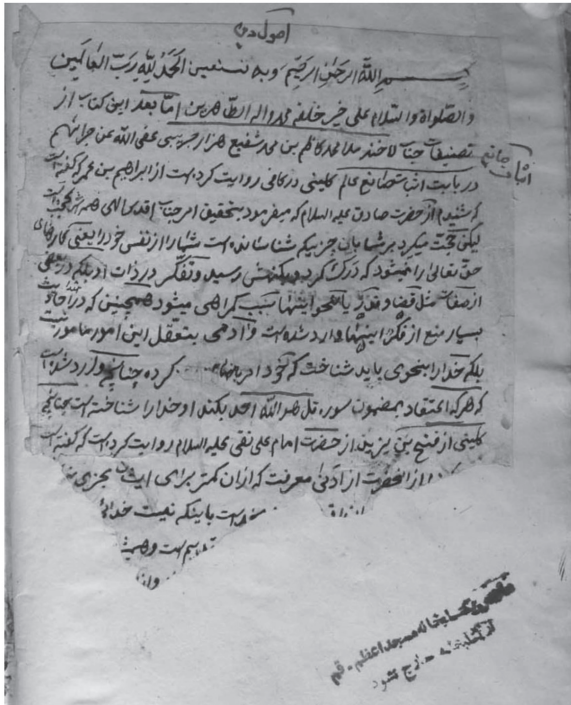 اصول دین
بسم الله الرحمن الرحیم و به نستعین الحمد لله رب العالمین
والصلواة والسلام علی خیر خلقه محمد واله الطاهرین اما بعد این کتاب از
تصنیفات جناب آخند ملا محمد کاظم بن محمد شفیع هزار جریبی عفی الله عن جرائمهم
اثبات صانع
در بابت اثبات صانع عالم کلینی در کافی روایت کرده است از ابراهیم بن عمر که گفته است
که شنیدم از حضرت صادق علیه السلام که میفرمود بتحقیق امر جناب اقدس الهی همه‌اش عجیب است
لیکن حجت میگیرد بر شما بآن چیزیکه شناسانده است شما را از نفس خود را یعنی
حق تعالی را نمیشود که درک کرد و بکنهش رسید و تفکر در ذات او بلکه در بعضی
از صفات مثل قضا و قدر یا نحو اینها سبب گمراهی میشود همچنین که در احادیث
بسیار منع از فکر اینها وارد شده است و آدمی بتعقل این امور مامور نیست
بلکه خدا را بنحوی باید شناخت که خود امر کرده چنانچه وارد شده است
که هر که اعتقاد بمضمون سوره قل هو الله احد بکند او خدا را شناخته است چنانچه
کلینی از فتح بن یزید از حضرت امام علی نقی علیه السلام روایت کرده است که گفته است
از آنحضرت از ادنی معرفت که از آن کمتر برای ایشان مجزی
است باینکه نیست خدائی
قدیم است و همیشه
وانه
کتابخانه مسجد اعظم - قم
از کتابخانه خارج نشود